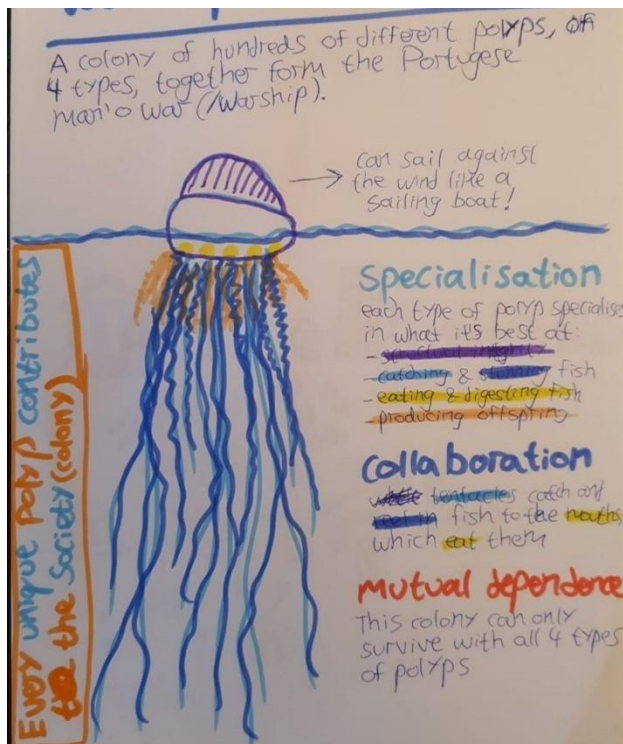 A colony of hundreds of different polyps, of
4 types, together form the Portugese
man'o war (/warship).
can sail against
the wind like a
sailing boat!
Every unique polyp contributes
the Society (colony)
Specialisation
each type of polyp specialises
in what it's best at:
- structural
- catching & stunning fish
- eating & digesting fish
- producing offspring
Collaboration
tentacles catch and
reel in fish to the mouths,
which eat them
mutual dependence
This colony can only
survive with all 4 types
of polyps